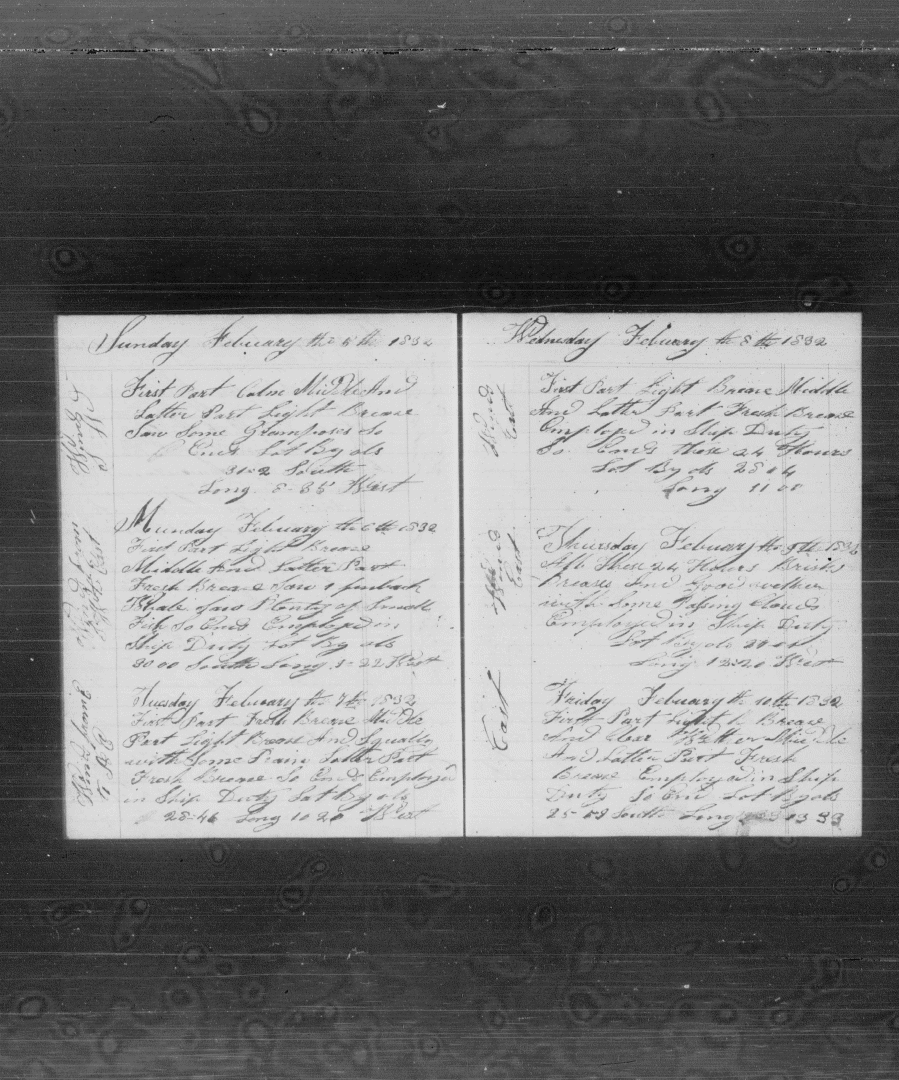 Sunday February the 5th 1832
First Part Calm Middle And
Latter Part Light Brease
Saw Some Grampuses So
Ends Lat By obs
31-2 South
Long. 8-35 West
Munday February the 6th 1832
First Part Light Brease
Middle And Latter Part
Fresh Brease Saw 1 finback
Whale Plenty of Small
Fish So Ends Employed in
Ship Duty Lat By obs
30 00 South Long West
Tuesday February the 7th 1832
First Part Fresh Brease Middle
Part Light Brease And Squally
with Some Rain Latter Part
Fresh Brease So Ends Employed
in Ship Duty Lat By obs
28-46 Long 10 20 West
Wednesday February the 8th 1832
Wind
East
First Part Light Brease Middle
And Latter Part Fresh Brease
Employed in Ship Duty
So Ends these 24 Hours
Lat By obs 28 04
Long 11 00
Thursday February the 9th 1832
Wind
East
All These 24 Hours Brisk
Breases And Good weather
with Some Passing Clouds
Employed in Ship Duty
Lat By obs
Long 12-20 West
Friday February the 10th 1832
East
First Part Light Brease
And Clear Middle
And Latter Part Fresh
Brease Employed in Ship
Duty So Ends Lat By obs
South Long